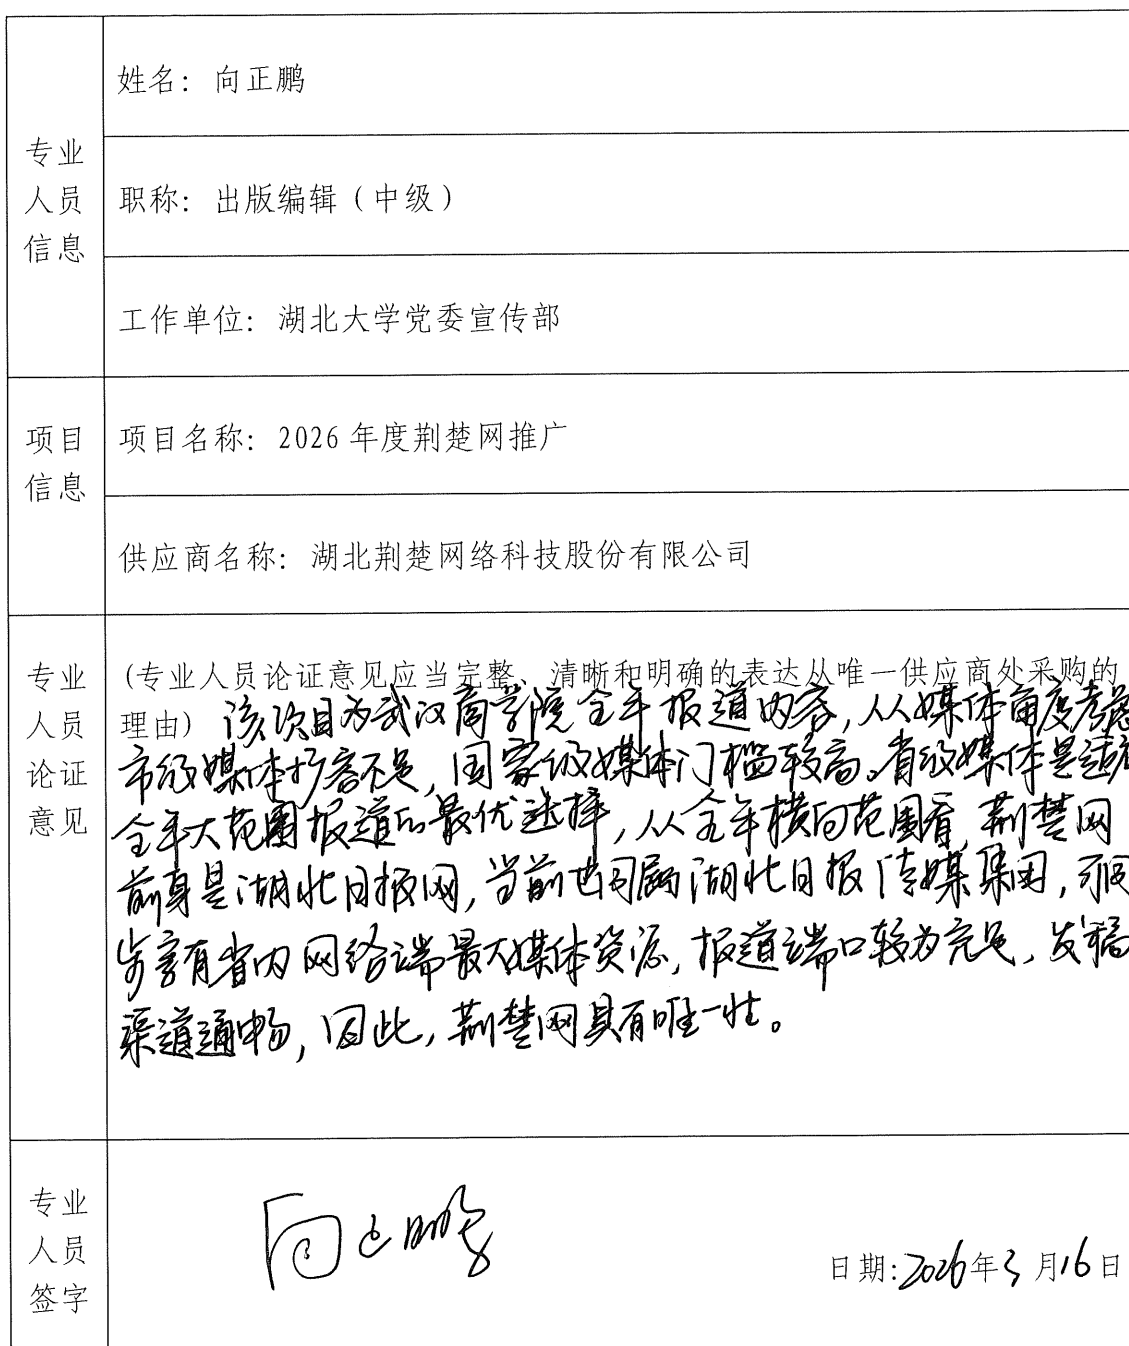 专业
人员
信息
姓名：向正鹏
职称：出版编辑（中级）
工作单位：湖北大学党委宣传部
项目
信息
项目名称：2026年度荆楚网推广
供应商名称：湖北荆楚网络科技股份有限公司
专业
人员
论证
意见
(专业人员论证意见应当完整、清晰和明确的表达从唯一供应商处采购的
理由) 该项目为武汉商学院全年报道内容，从媒体角度考虑
市级媒体扩容不足，国家级媒体门槛较高。省级媒体是适应
全年大范围报道的最优选择，从全年横向范围看，荆楚网
前身是湖北日报网，当前也同属湖北日报传媒集团，可同
步享有省内网络端最大媒体资源，报道端口较为充足，发稿
渠道通畅，因此，荆楚网具有唯一性。
专业
人员
签字
向正鹏
日期:2026年3月16日